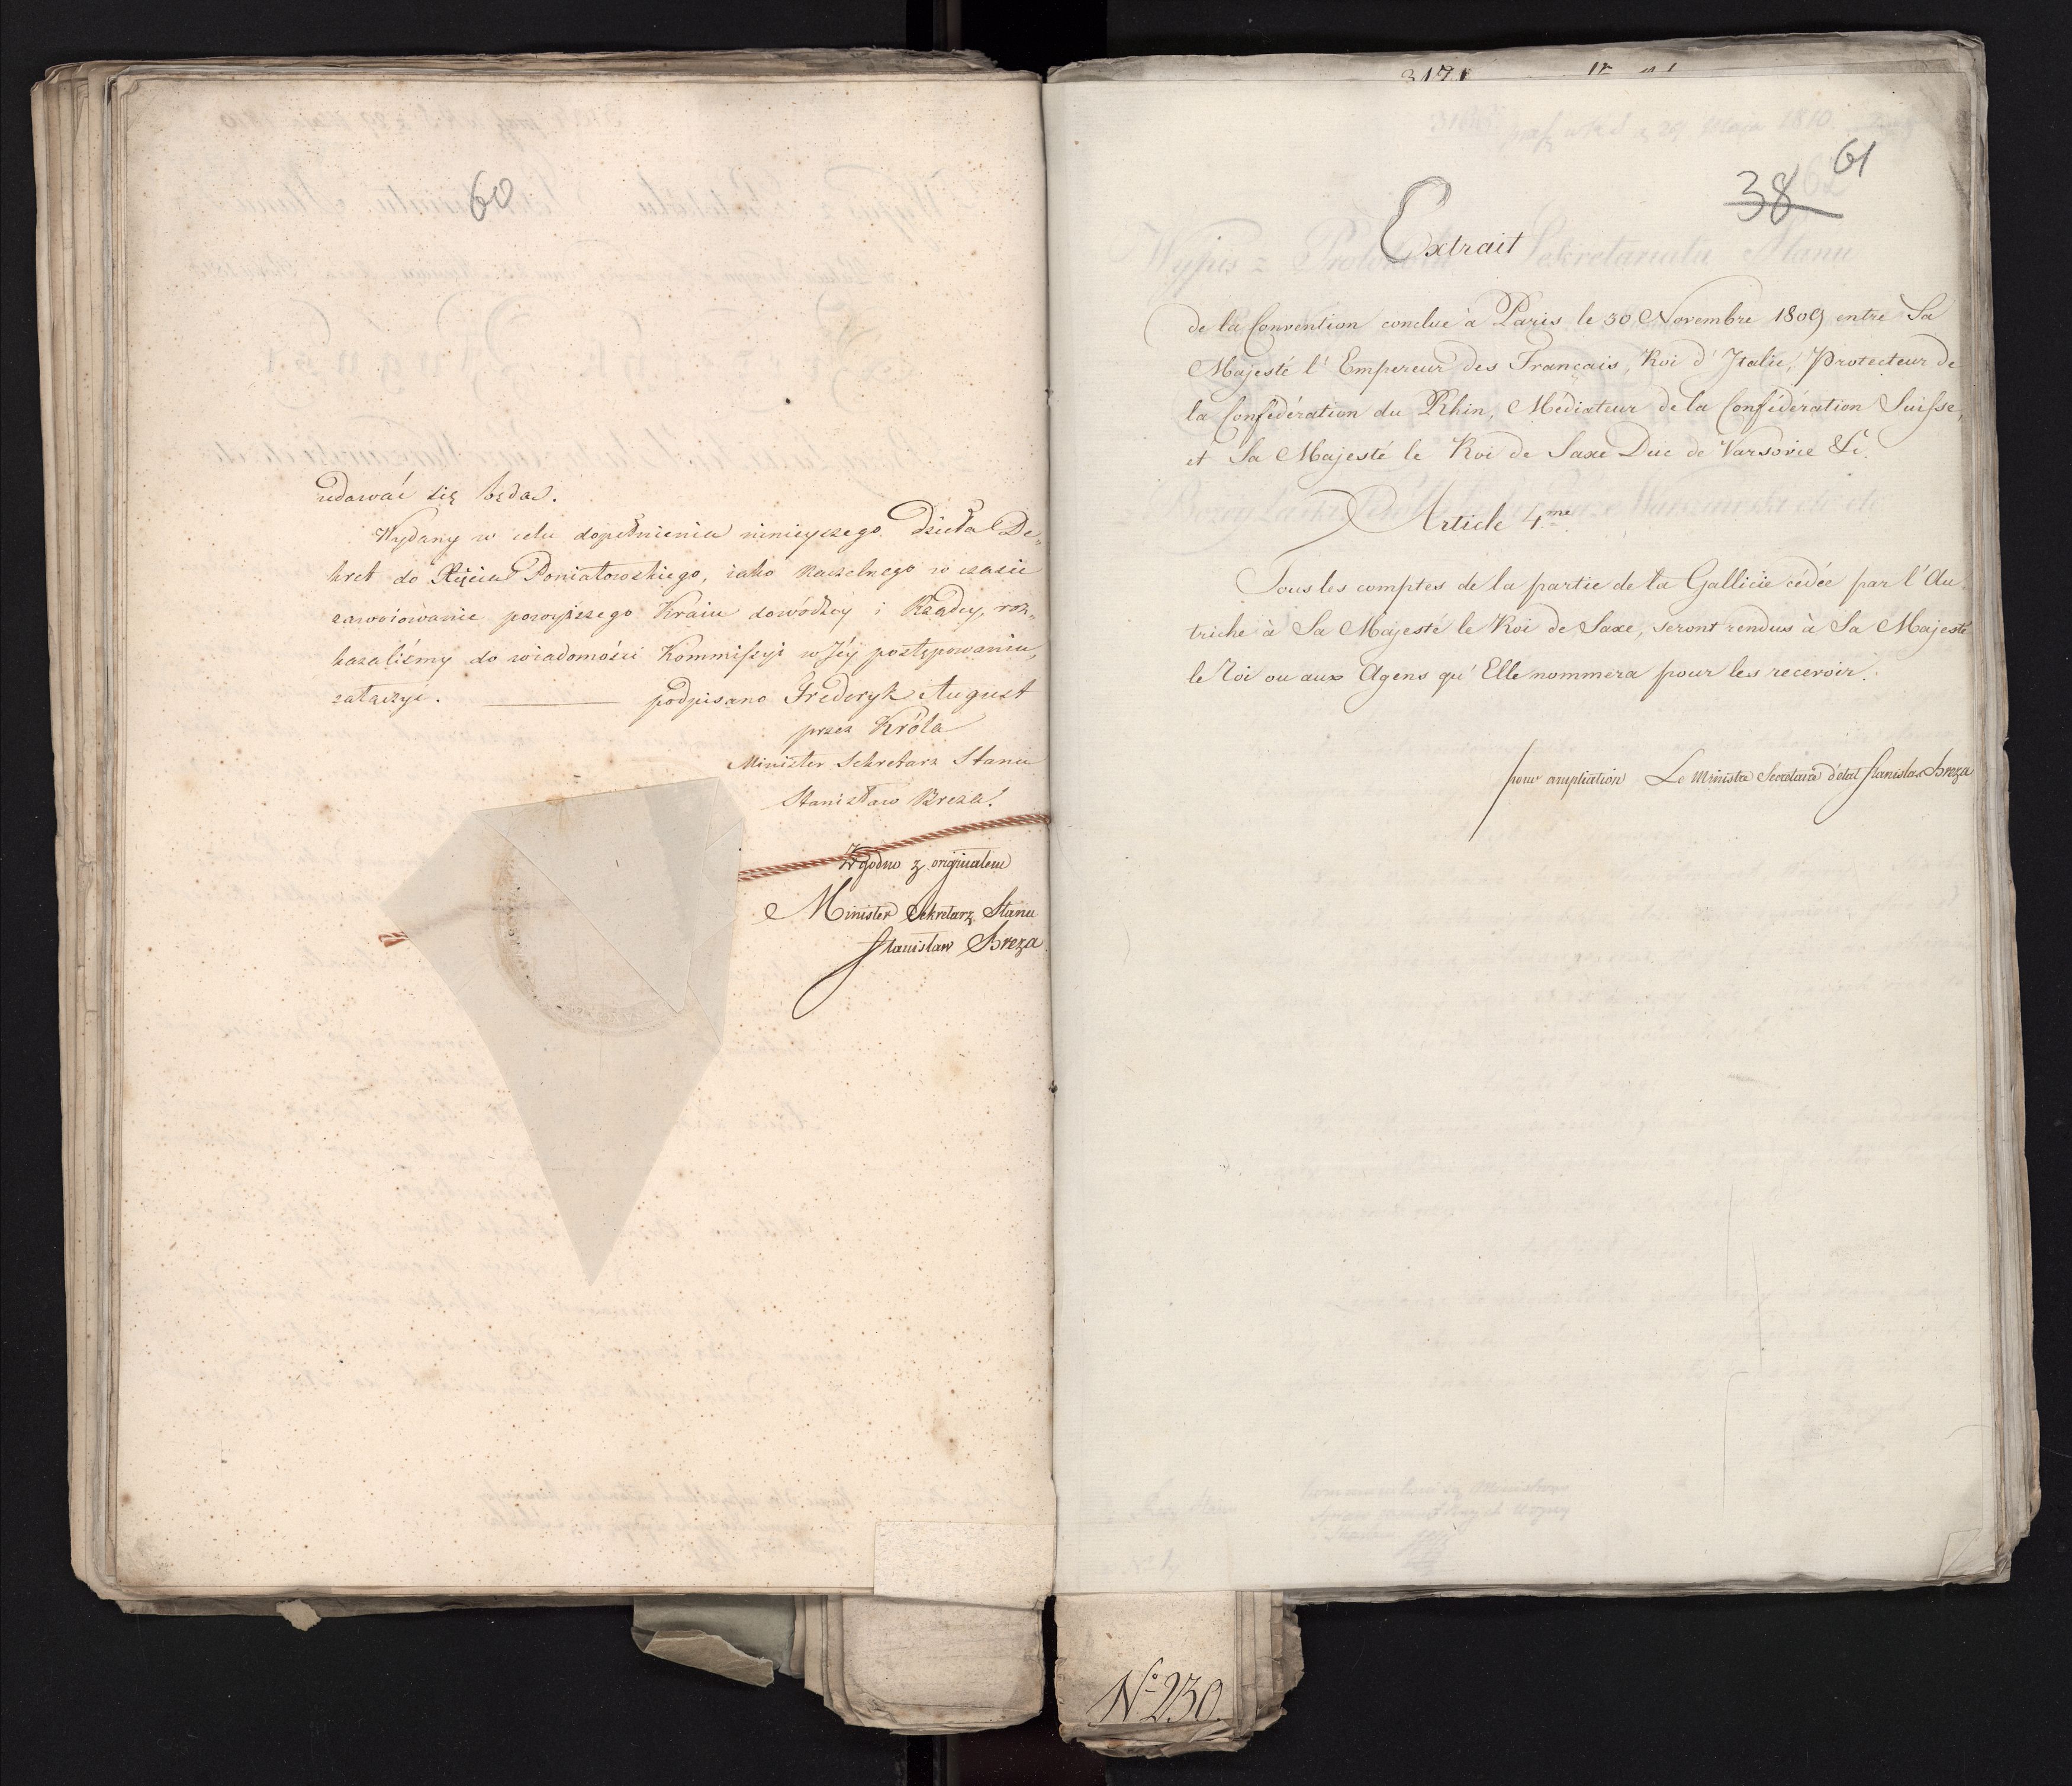 60
udawać się będą.
Wydany w celu dopełnienia ninieyszego Dzieła De„
kret do Xięcia Poniatowskiego, iako naczelnego w czasie
zawoiowanie powyższego Kraiu dowódzcy i Rządcy, roz„
kazaliśmy do wiadomości Kommissyi w Jéy postępowaniu,
załączyć. podpisano Frederyk August
przez Króla
Minister Sekretarz Stanu
Stanisław Breza.
Zgodno z originałem
Minister Sekretarz Stanu
Stanisław Breza
61
38
Extrait
de la Convention conclue à Paris le 30 Novembre 1809 entre Sa
Majesté l'Empereur des Français, Roi d'Italie, Protecteur de
la Confédération du Rhin, Médiateur de la Confédération Suisse,
et Sa Majesté le Roi de Saxe Duc de Varsovie &c.
Article 4.me
Tous les comptes de la partie de la Gallicie cédée par l'Au
triche à Sa Majesté le Roi de Saxe, seront rendus à Sa Majesté
le Roi ou aux Agens qu'Elle nommera pour les recevoir.
pour ampliation Le Ministre Secrétaire d'état Stanislas Breza
No 230.